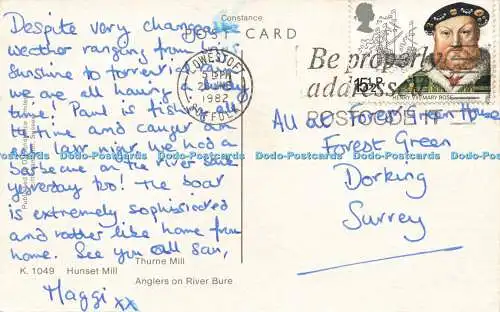 Constance
POST CARD
Despite very changeable
weather ranging from
Sunshine to torrential
we are all having a lovely
time! Paul is fishing all
the time and caught an
eel last night. We had a
barbecue on the river
yesterday too! The boat
is extremely sophisticated
and rather like home from
home. See you all soon,
Maggi xx
LOWESTOFT
5 15 PM
1982
SUFFOLK
Be properly
addressed
POSTCODE IT
15½P
HENRY VIII/MARY ROSE
All at Forest Green House
Forest Green
Dorking
Surrey
Thurne Mill
K. 1049 Hunset Mill
Anglers on River Bure
Dodo-Postcards Dodo-Postcards Dodo-Postcards Dodo-Postcards Dodo-Postcards